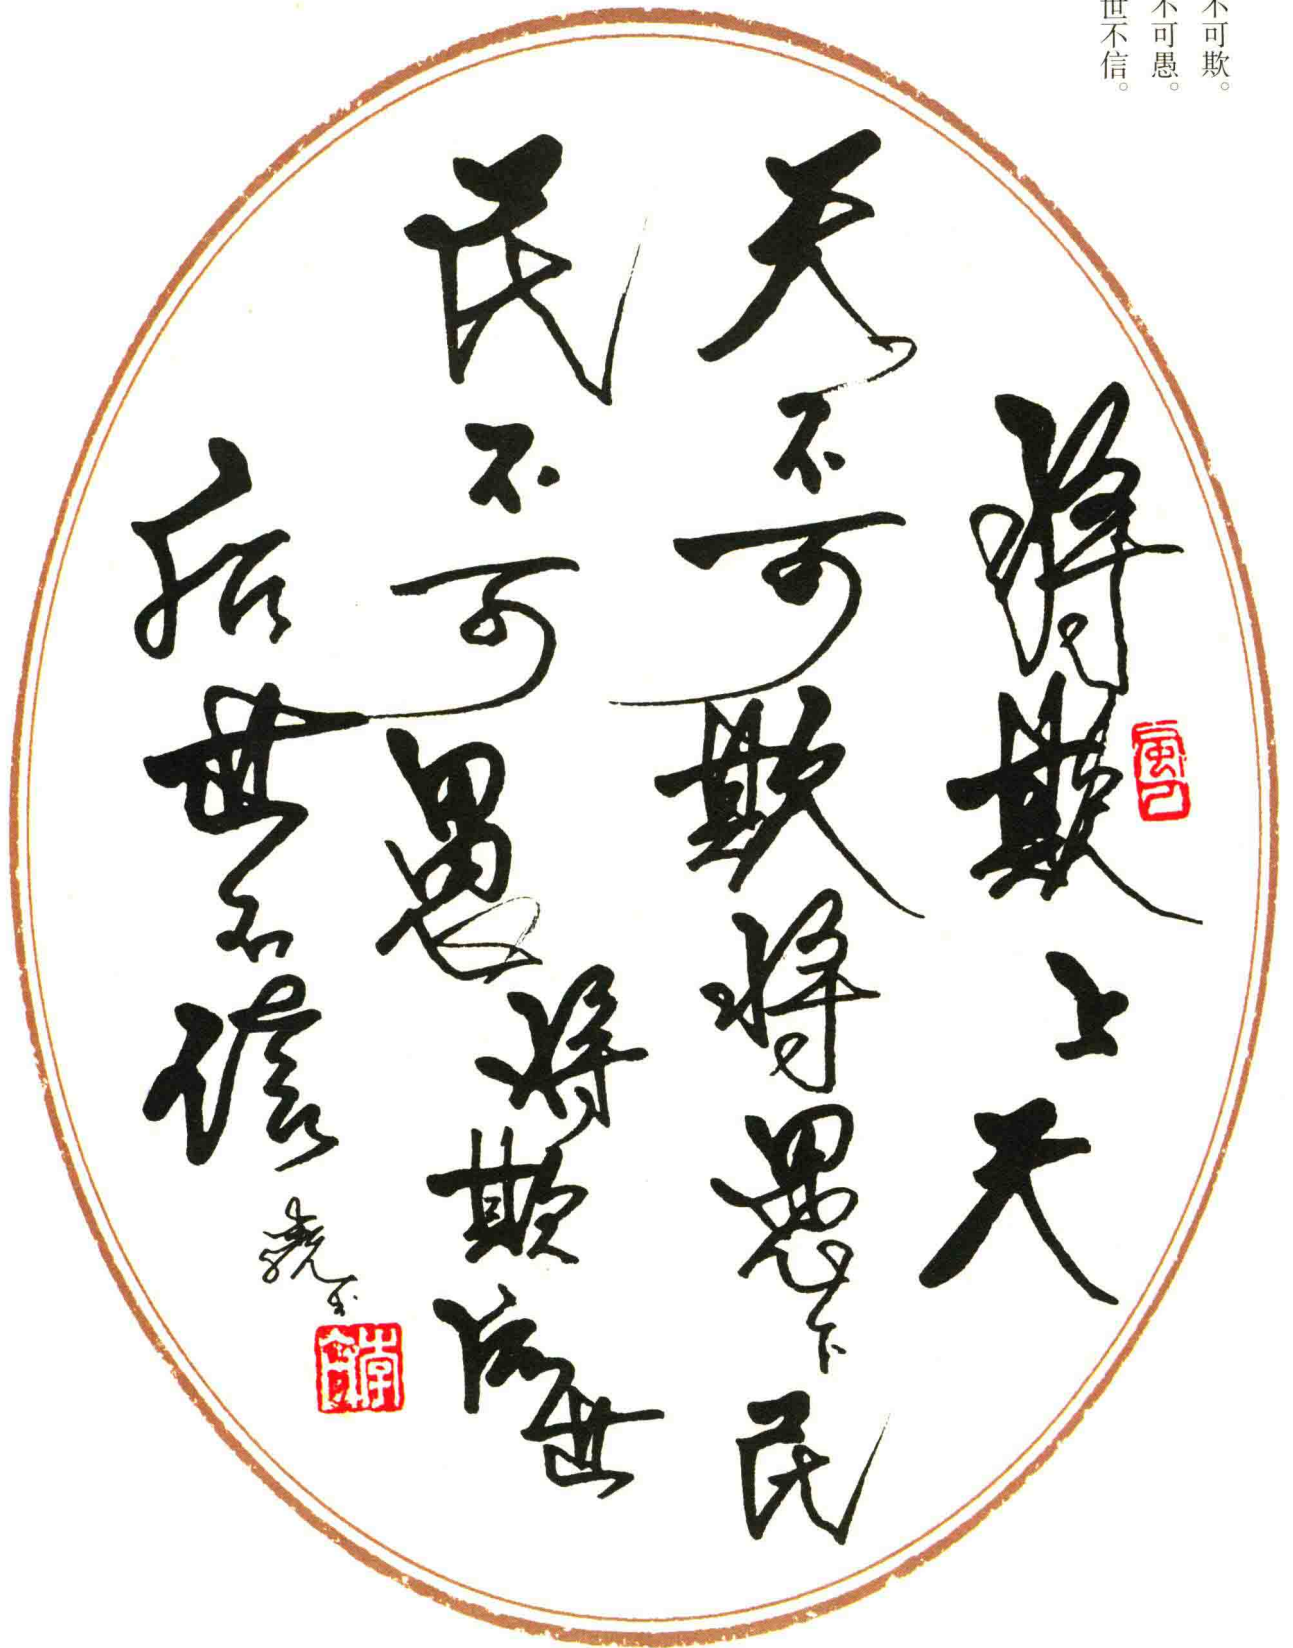 不可欺。
不可愚。
世不信。
将欺上天
天不可欺将愚下民
民不可愚将欺后世
后世不信